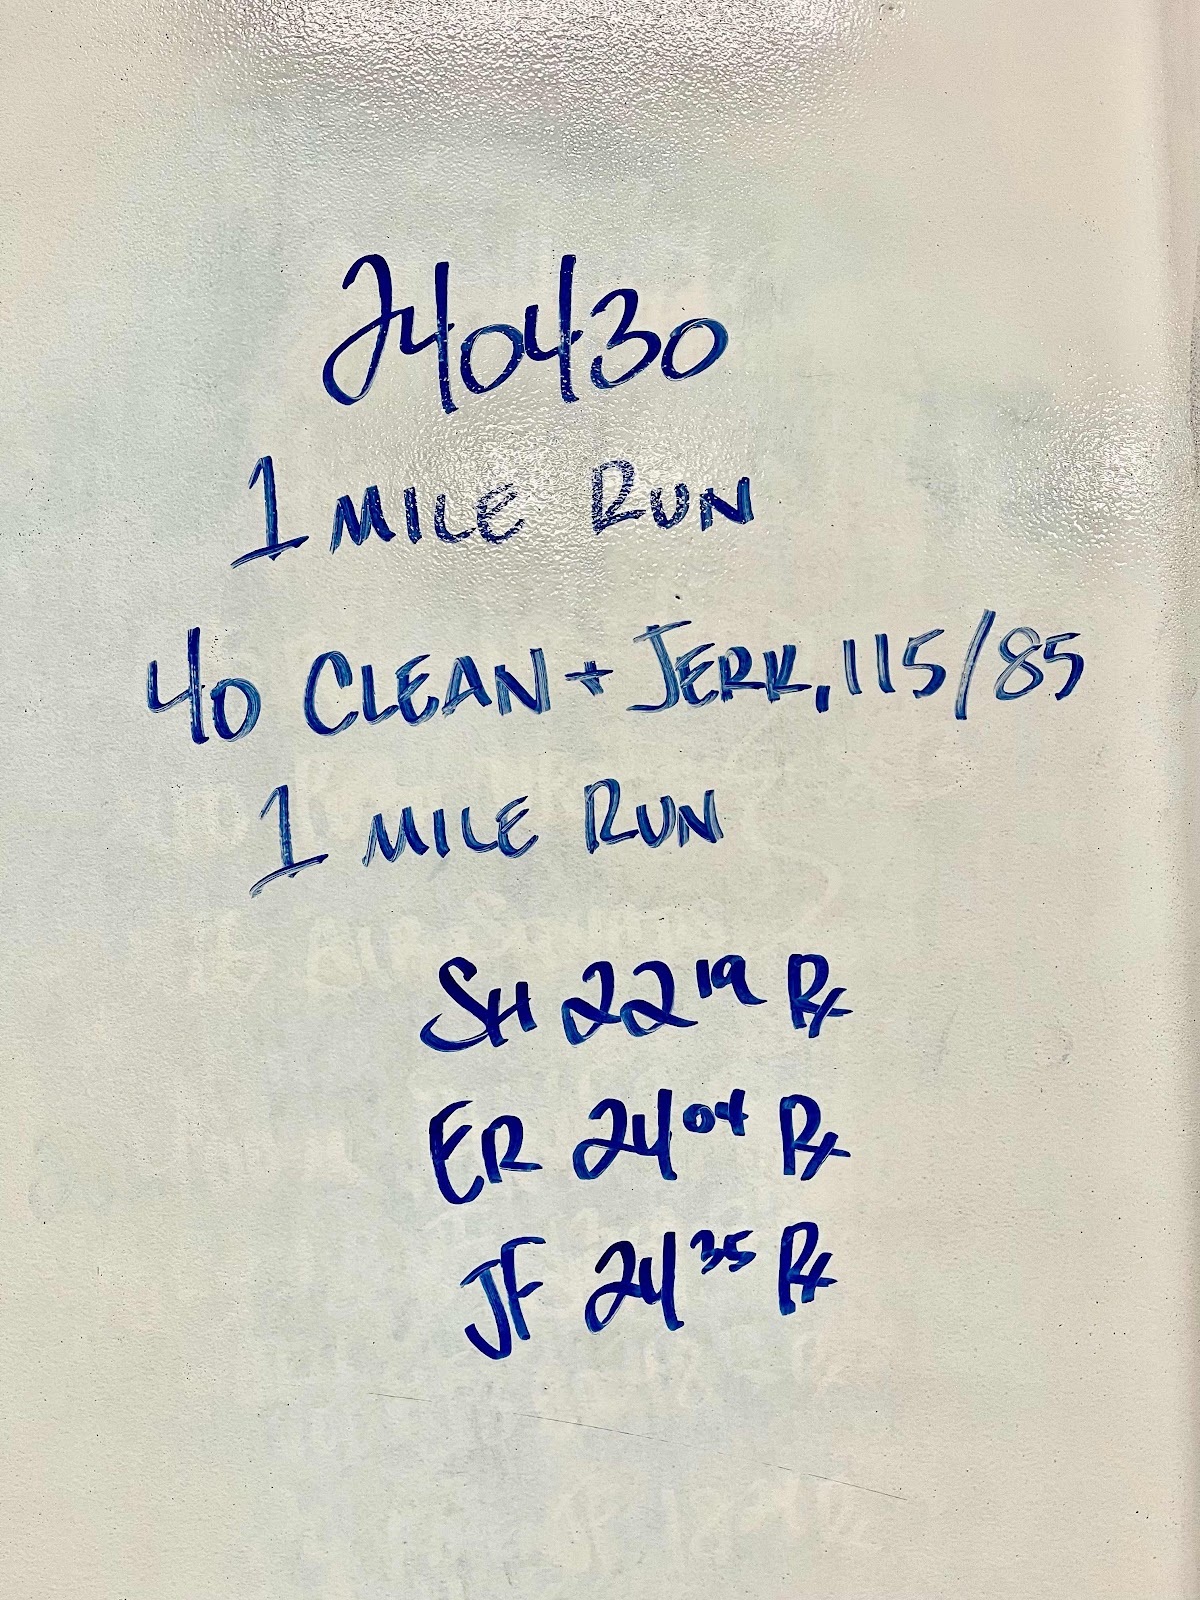 240430
1 MILE RUN
40 CLEAN + JERK, 115/85
1 MILE RUN
SH 22 19 Rx
ER 24 04 Rx
JF 24 35 Rx